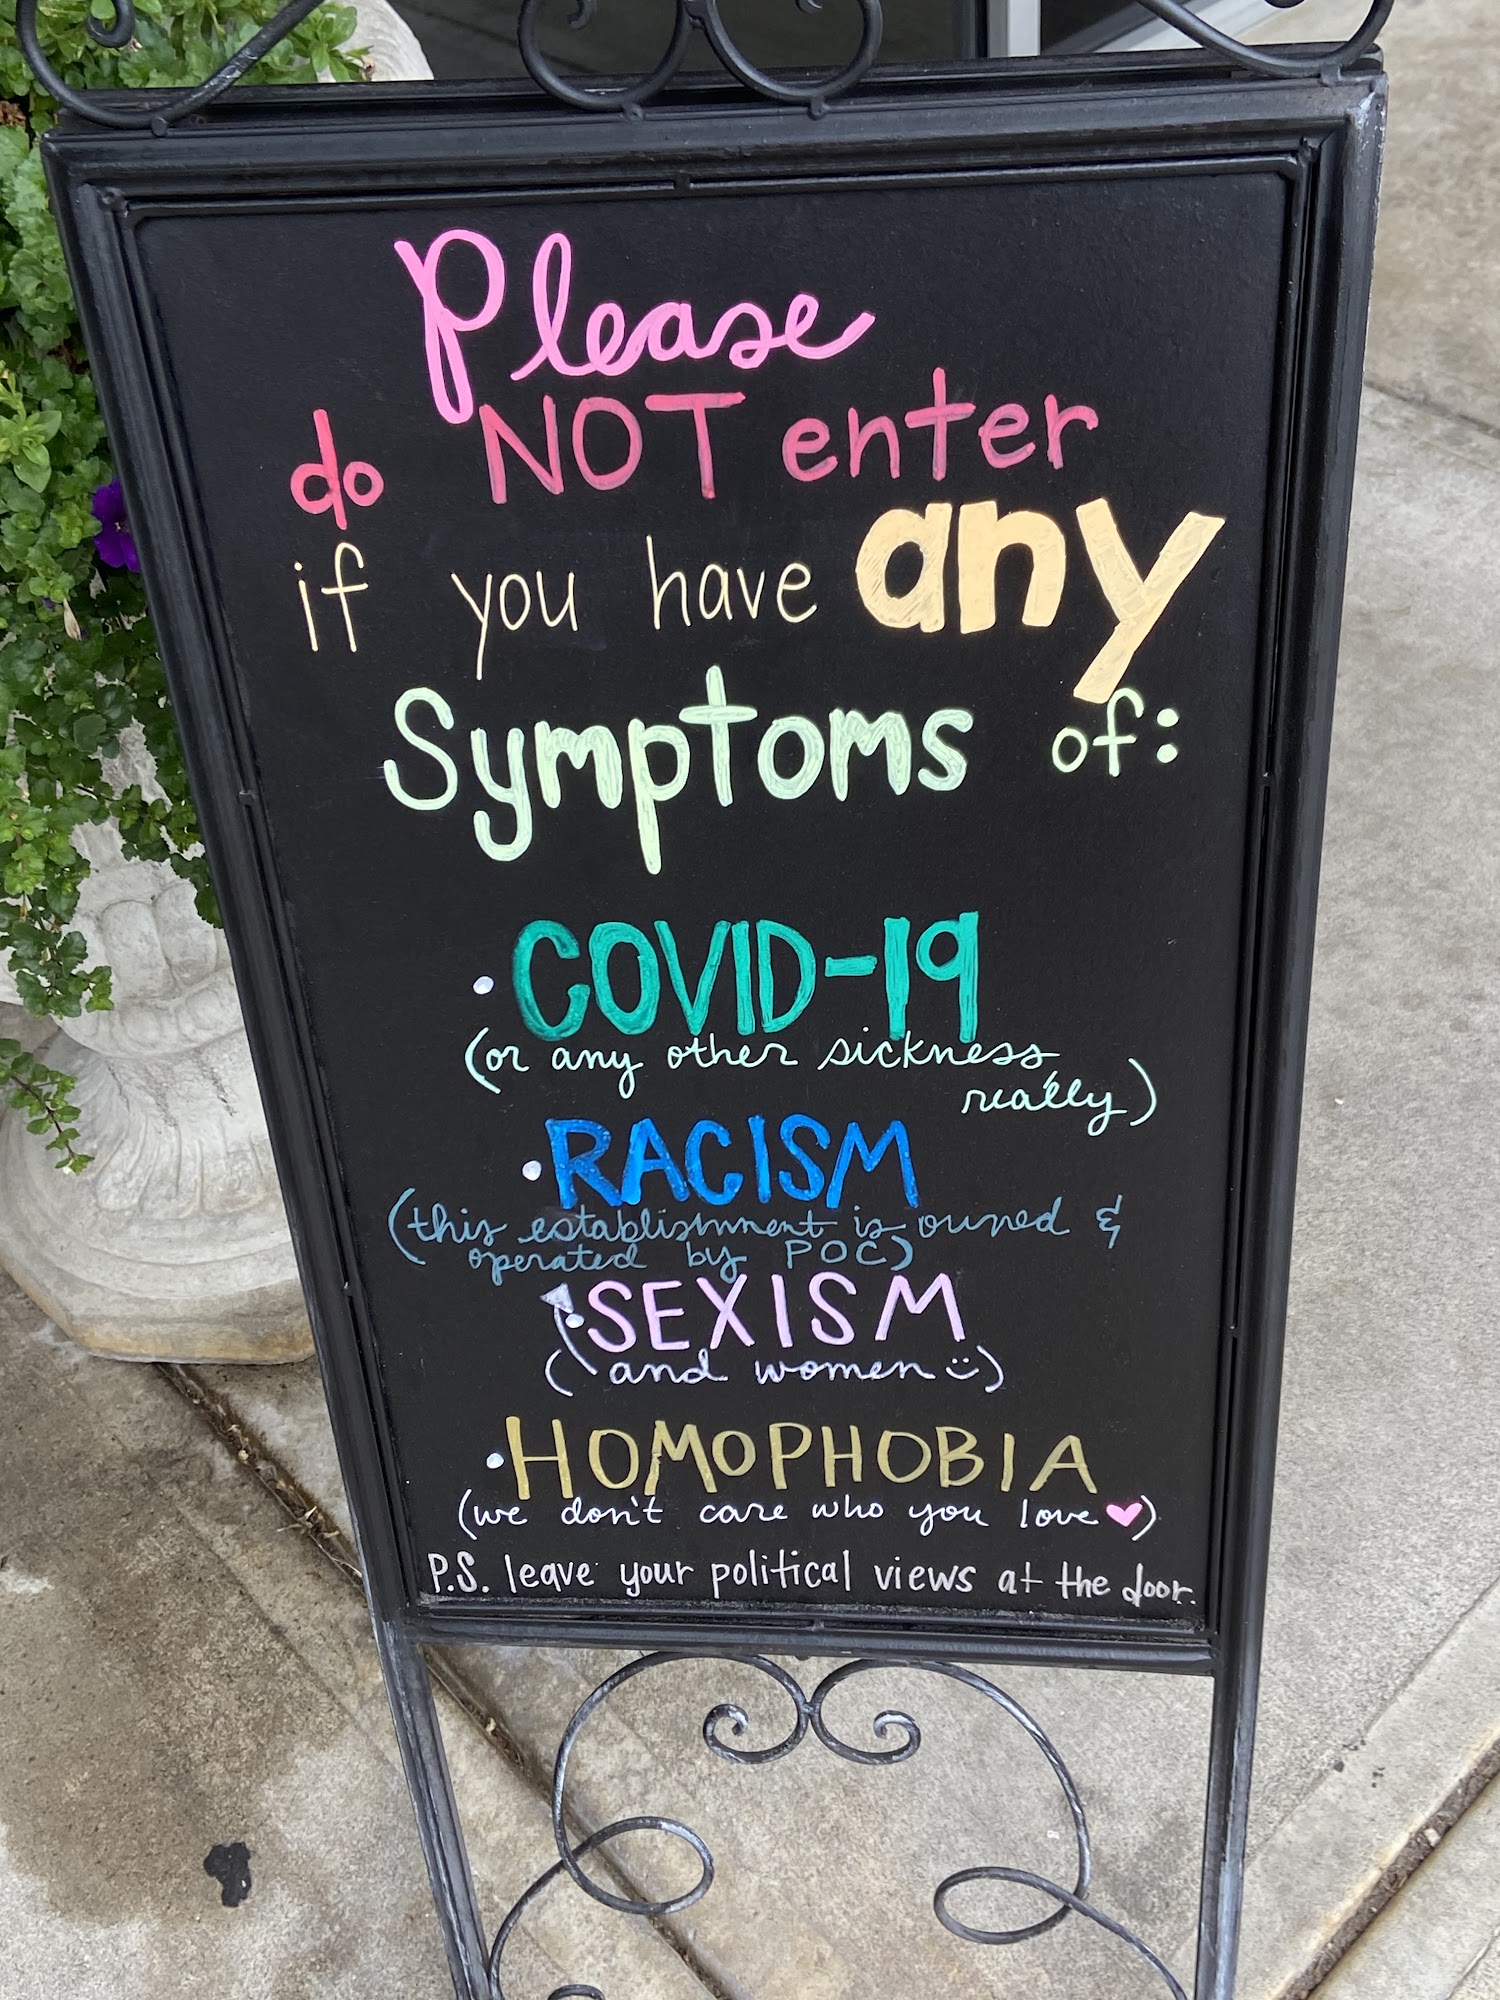 Please
do NOT enter
if you have any
Symptoms of:
• COVID-19
(or any other sickness,
really)
• RACISM
(this establishment is owned &
operated by POC)
• SEXISM
(and women :))
• HOMOPHOBIA
(we don't care who you love ♥)
P.S. leave your political views at the door.